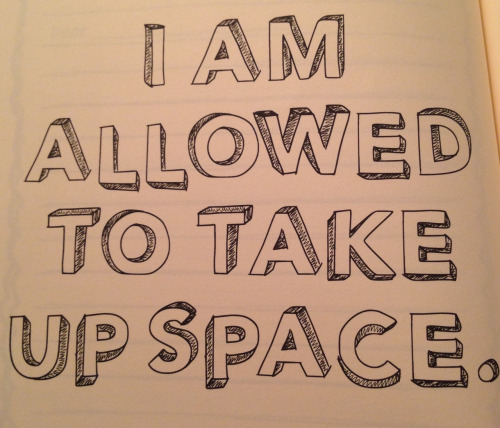 I AM
ALLOWED
TO TAKE
UP SPACE.